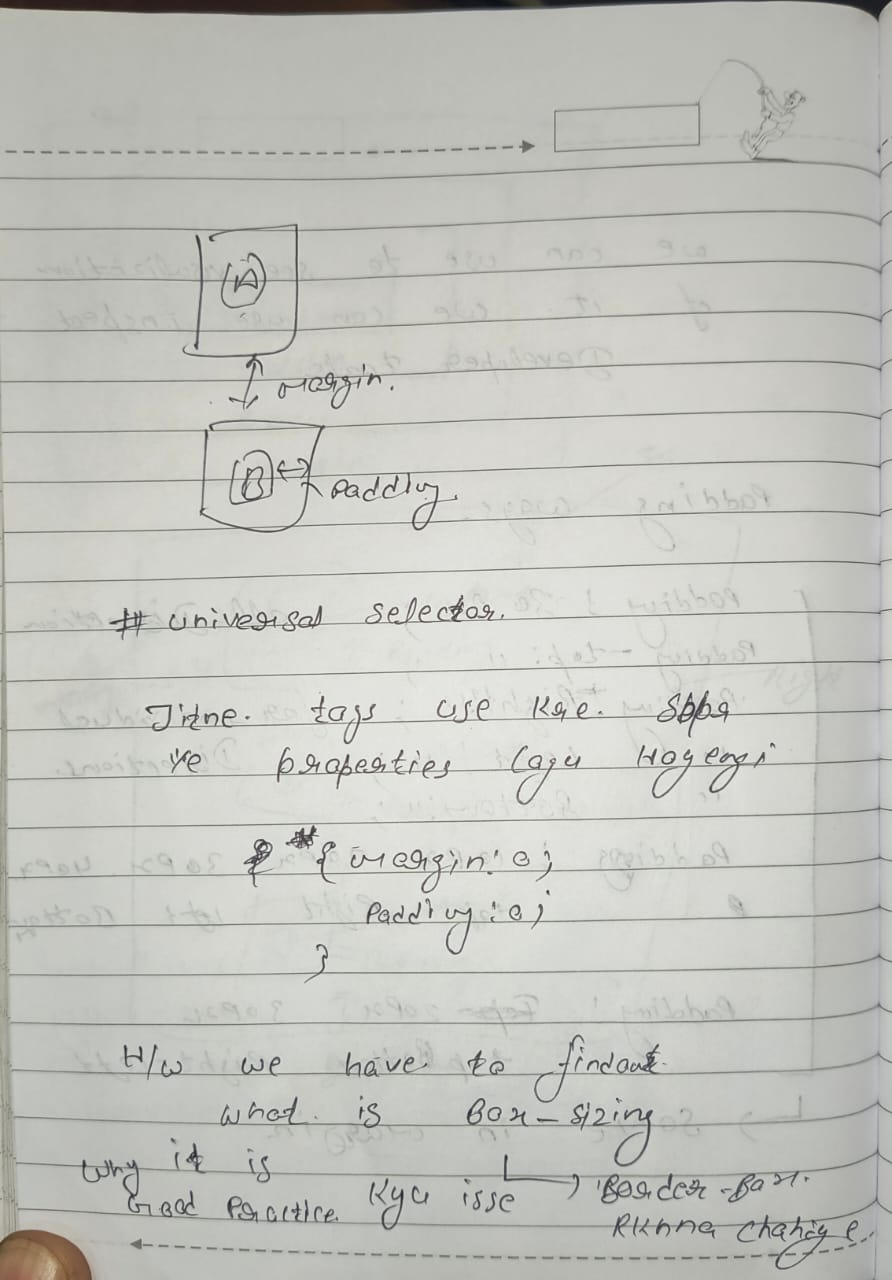 A
margin.
B
Padding.
# universal selector.
Jitne. tags use kre. Sbpr
ye properties lagu Hogengi
*{ margin: 0;
Padding: 0;
}
H/w we have to findout
what is Box-sizing
Why it is
Good Practice Kya isse → Border-Box.
Rkhna Chahiye